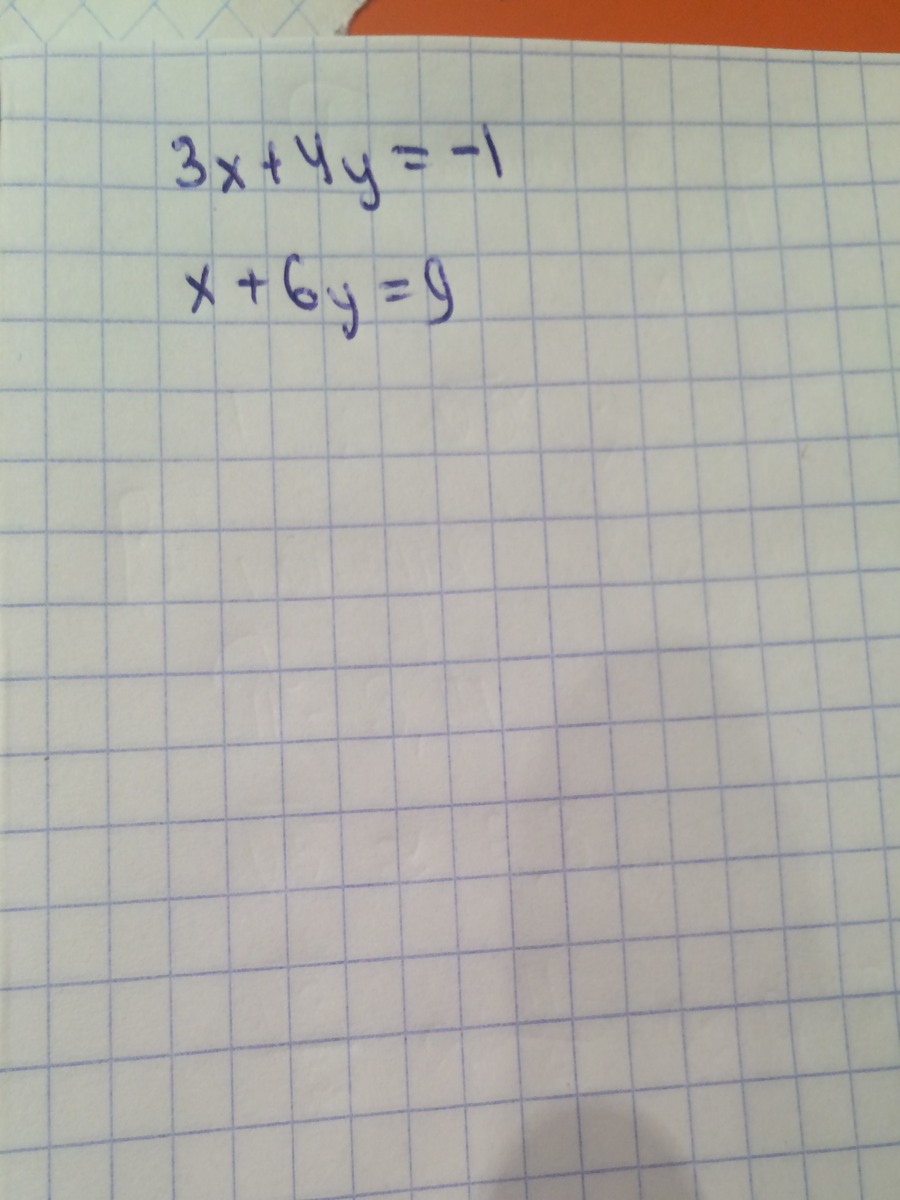 3x+4y=-1
x+6y=9